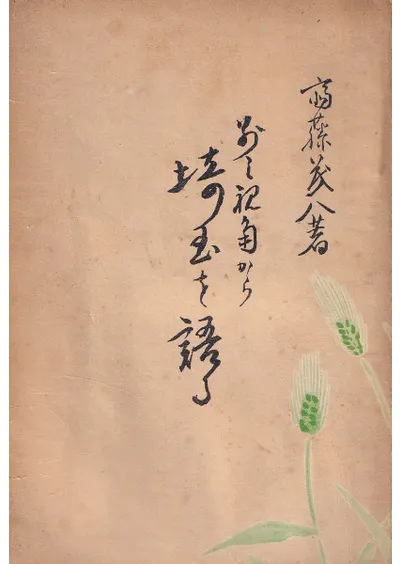 斎藤茂八著
別な視角から
埼玉を語る